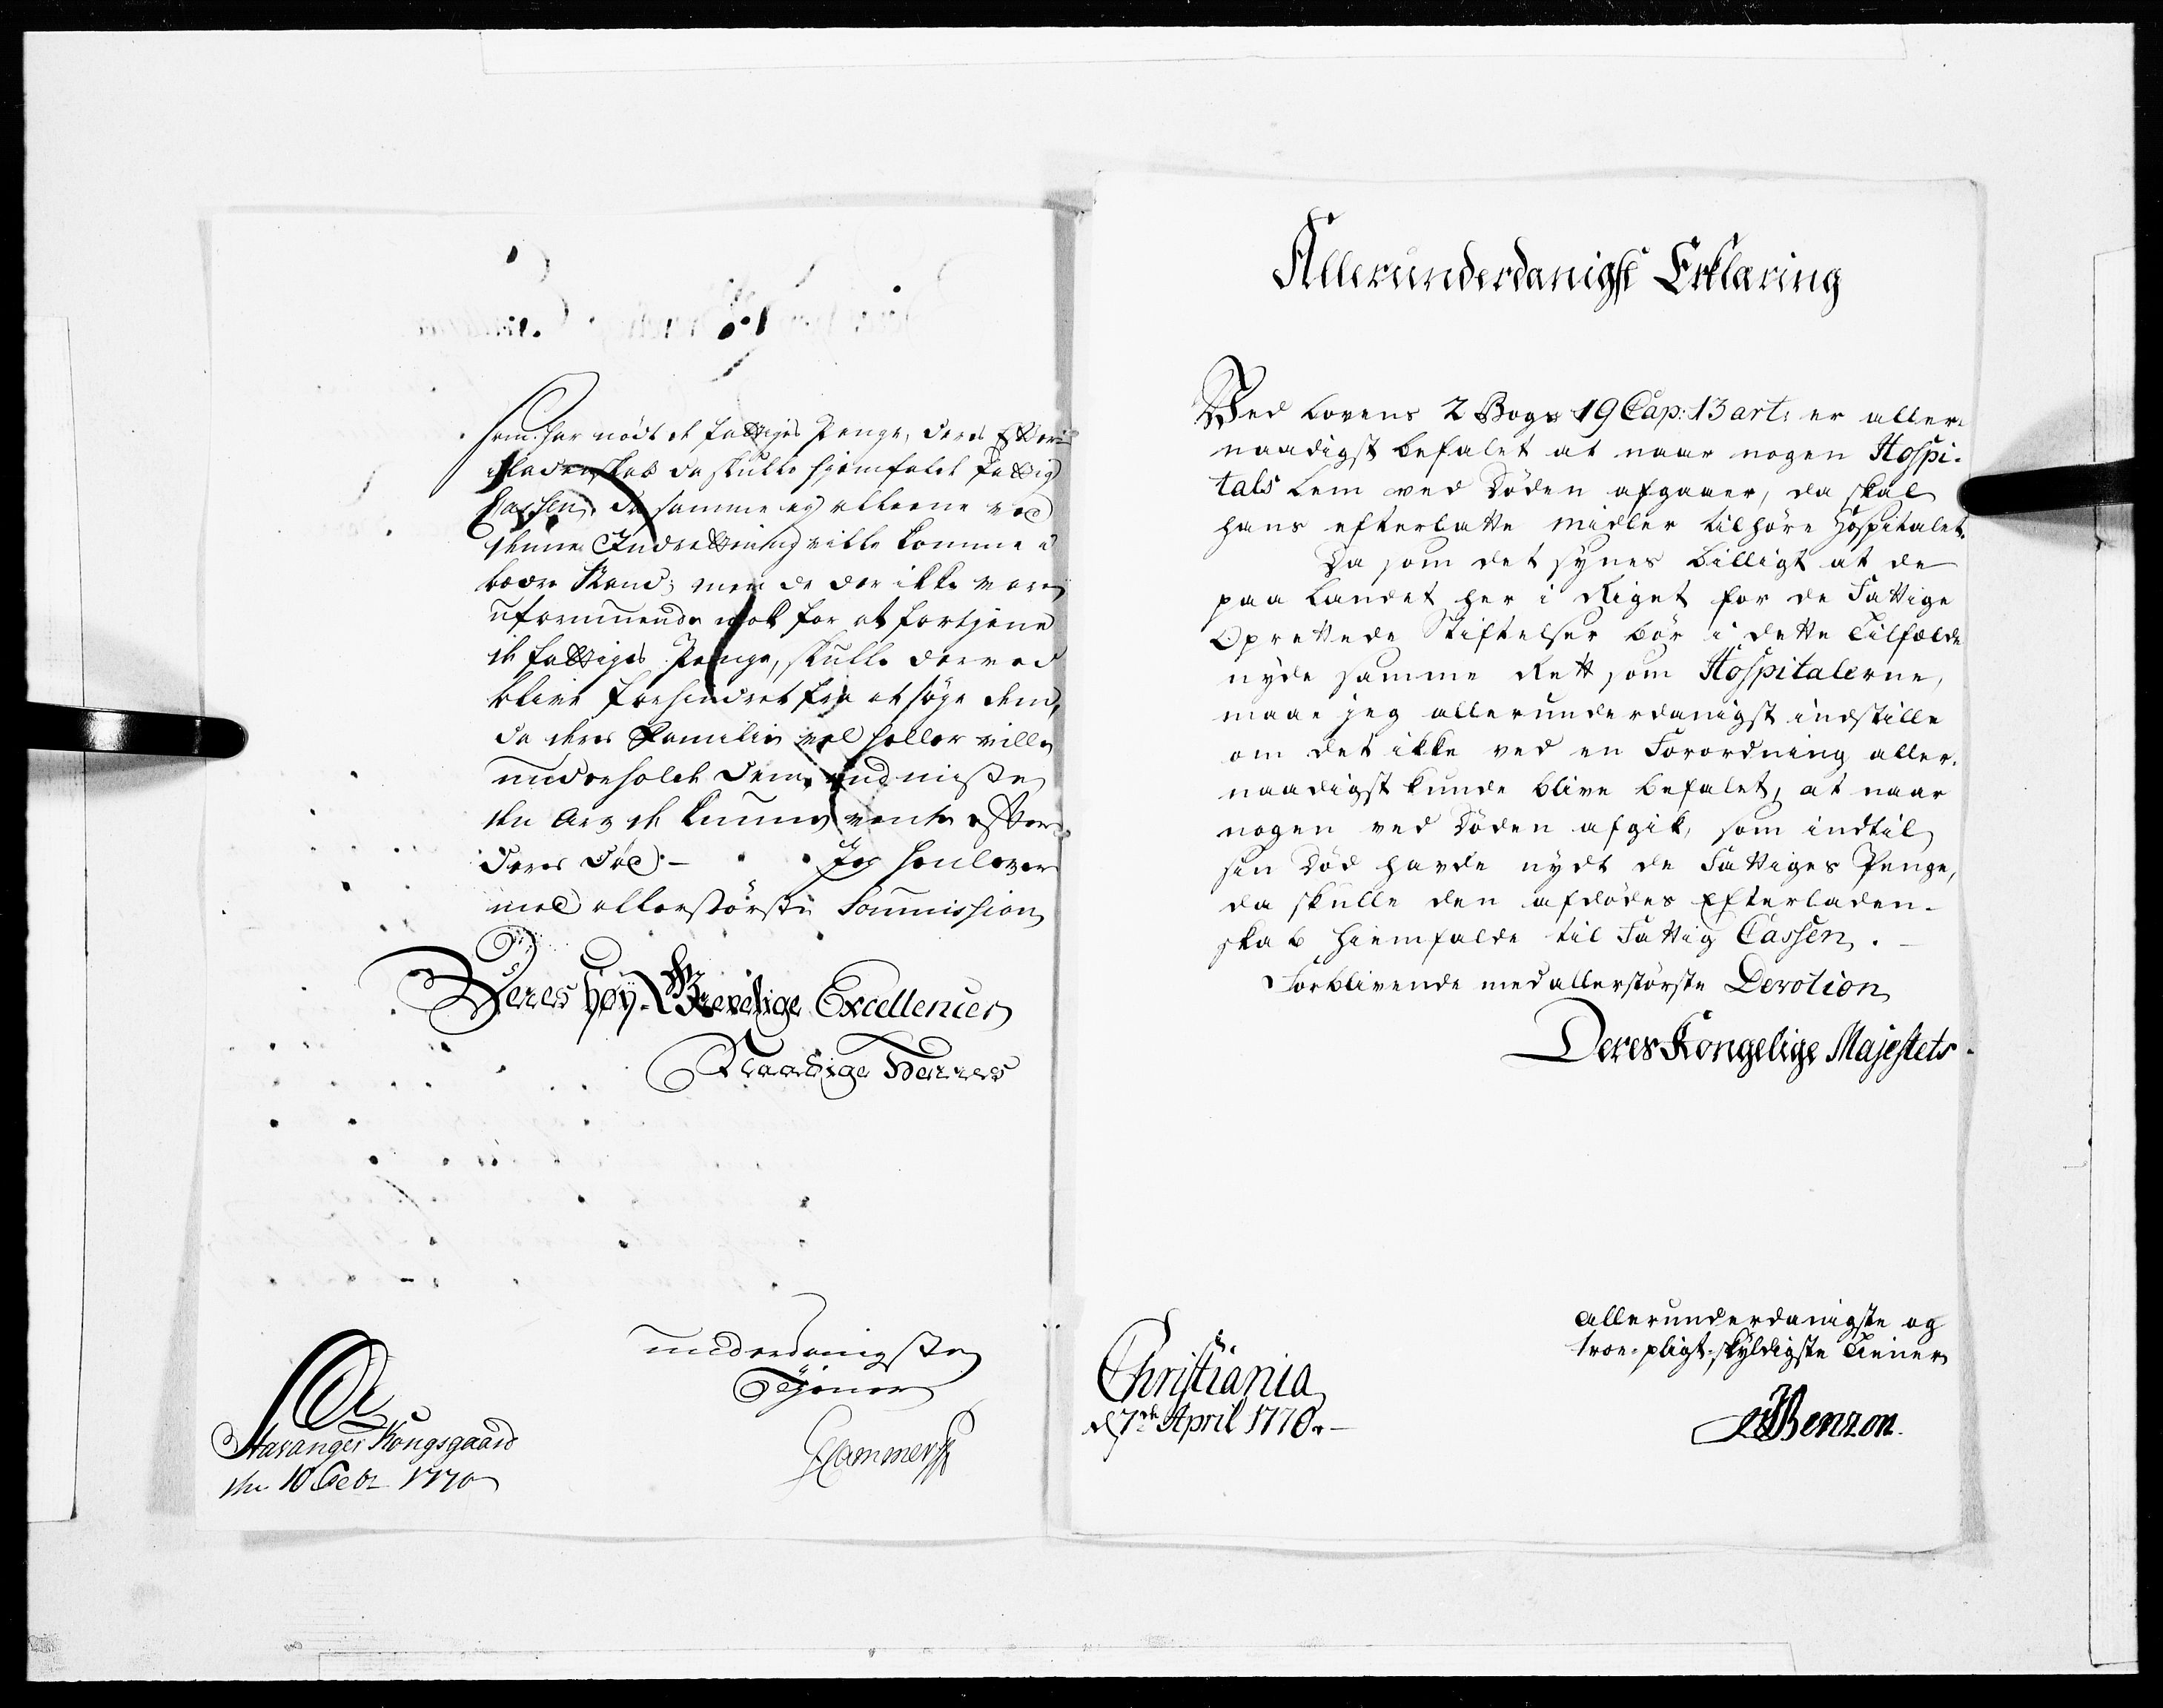 som har nødt de fattiges Penge, deres Efter-
ladenskab da skulle hjemfalde Fattig
Cassen, da samme og alleene ved
denne Indretning ville komme i
bedre Stand; men de der ikke vare
uformuende nok for at fortjene
de fattiges Penge, skulle derved
blive forhindret fra at søge dem,
da deres Familie vel heller ville
underholde dem, end miste
den Arv de kunne vente efter
deres Død. – Jeg henlever
med allerstørste Soumission
Deres Høy-Grevelige Excellences
Naadige Herres
underdanigste
Tjener
Hammer
Stavanger Kongsgaard
den 10 Febr 1770
Allerunderdanigst Erklæring
Ved Lovens 2 Bogs 19 Cap: 13 art: er aller-
naadigst befalet at naar nogen Hospi-
tals Lem ved Døden afgaaer, da skal
hans efterlatte Midler tilhøre Hospitalet.
Da som det synes billigt at de
paa Landet her i Riget for de Fattige
Oprettede Stiftelser bør i dette Tilfælde
nyde samme Rett som Hospitalerne,
maae jeg allerunderdanigst indstille
om det ikke ved en Forordning aller-
naadigst kunde blive befalet, at naar
nogen ved Døden afgik, som indtil
sin Død havde nydt de Fattiges Penge,
da skulle den afdødes Efterladen-
skab hiemfalde til Fattig Cassen. –
Forblivende med allerstørste Devotion
Deres Kongelige Majestets
allerunderdanigste og
troe-pligt-skyldigste Tiener
Benzon
Christiania
d 7de April 1770. –